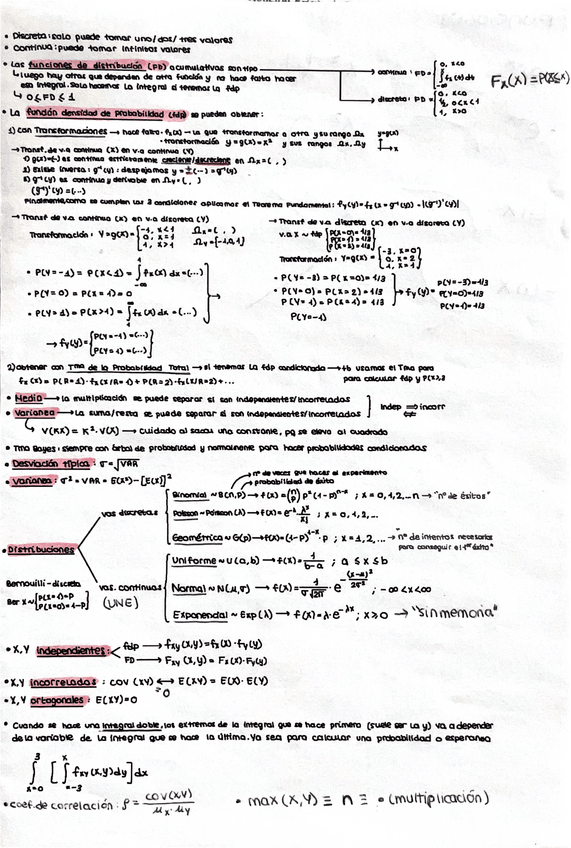 • Discreta: solo puede tomar uno/dos/tres valores
• Continua: puede tomar infinitos valores
• Las funciones de distribución (FD) acumulativas son tipo → continua: FD = { 0, x<0 ; ∫ fx(t)dt
Fx(x) = P(X≤x)
↳ luego hay otras que dependen de otra función y no hace falta hacer
esa integral. Solo hacemos la integral si tenemos la fdp
↳ 0 ≤ FD ≤ 1
→ discreta: FD = { 0, x<0 ; 1/2, 0<x<1 ; 1, x>0
• La función densidad de probabilidad (fdp) se pueden obtener:
1) con Transformaciones → hace falta: · fx(x) → la que transformamos a otra y su rango Ωx
· transformación y=g(x)=x² y sus rangos Ωx, Ωy
y=g(x)
→ Transf. de v.a continua (X) en v.a continua (Y)
1) g(x)=(-) es continua estrictamente creciente/decreciente en Ωx = ( , )
2) Existe inversa: g⁻¹(y) : despejamos y = ±(...) = g⁻¹(y)
3) g⁻¹(y) es continua y derivable en Ωy = ( , )
(g⁻¹)'(y) = (...)
Finalmente, como se cumplen las 3 condiciones aplicamos el Teorema Fundamental: fy(y) = fx(x = g⁻¹(y)) · |(g⁻¹)'(y)|
→ Transf de v.a continua (X) en v.a discreta (Y)
Transformación: Y=g(X) = { -1, x<1 ; 0, x=1 ; 1, x>1
Ωx = ( , )
Ωy = {-1,0,1}
• P(Y=-1) = P(X<1) = ∫ fx(x) dx = (...)
• P(Y=0) = P(X=1) = 0
• P(Y=1) = P(X>1) = ∫ fx(x) dx = (...)
→ fy(y) = { P(Y=-1) = (...) ; P(Y=1) = (...)
→ Transf de v.a discreta (X) en v.a discreta (Y)
v.a X ~ fdp
Transformación: Y=g(X) = { -3, x=0 ; 0, x=2 ; 1, x=1
• P(Y=-3) = P(X=0) = 1/3
• P(Y=0) = P(X=2) = 1/3
P(Y=1) = P(X=1) = 1/3
→ fy(y) = { P(Y=-3)=1/3 ; P(Y=0)=1/3 ; P(Y=1)=1/3
P(Y=-1)
2) obtener con Tma de la Probabilidad Total → si tenemos la fdp condicionada → tb usamos el Tma para
fx(x) = P(R=1)·fx(x/R=1) + P(R=2)·fx(x/R=2)+...
para calcular fdp y
• Media → la multiplicación se puede separar si son independientes/incorrelados
• Varianza → La suma/resta se puede separar si son independientes/incorrelados
Indep ⇒ incorr
↳ V(KX) = K²·V(X) → cuidado al sacar una constante, pq se eleva al cuadrado
• Tma Bayes: siempre con árbol de probabilidad y normalmente para hacer probabilidades condicionadas
• Desviación típica: σ = √VAR
• Varianza: σ² = VAR = E(X²) - [E(X)]²
nº de veces que haces el experimento
probabilidad de éxito
• Distribuciones
vas discretas
Binomial ~ B(n,p) → f(x) = (n p) p^x (1-p)^(n-x) ; x = 0,1,2,..n → "nº de éxitos"
Poisson ~ Poisson(λ) → f(x) = e^-λ λ^x/x! ; x = 0,1,2,...
Geométrica ~ G(p) → f(x) = (1-p)^(1-x)·p ; x = 1,2,... → "nº de intentos necesarios
para conseguir el 1er éxito"
vas. continuas
(UNE)
Uniforme ~ U(a,b) → f(x) = 1/(b-a) ; a ≤ x ≤ b
Normal ~ N(μ,σ) → f(x) = 1/(σ√2π) e^-(x-μ)²/2σ² ; -∞<x<∞
Exponencial ~ Exp(λ) → f(x) = λ·e^-λx ; x≥0 → "sin memoria"
Bernouilli-discreta
Ber X ~ { P(X=1)=p ; P(X=0)=1-p
• X,Y independientes:
fdp → fxy(x,y) = fx(x)·fy(y)
FD → Fxy(x,y) = Fx(x)·Fy(y)
• X,Y incorreladas: COV(XY) ↔ E(XY) = E(X)·E(Y)
=0
• X,Y ortogonales: E(XY)=0
• Cuando se hace una integral doble, los extremos de la integral que se hace primero (suele ser la y) va a depender
de la variable de la integral que se hace la última. Ya sea para calcular una probabilidad o esperanza
∫ (x=0, 3) [ ∫ (-3, x) fxy(x,y)dy ] dx
• coef. de correlación: ρ = cov(x,y) / μx·μy
• max(X,Y) ≡ ∩ ≡ • (multiplicación)